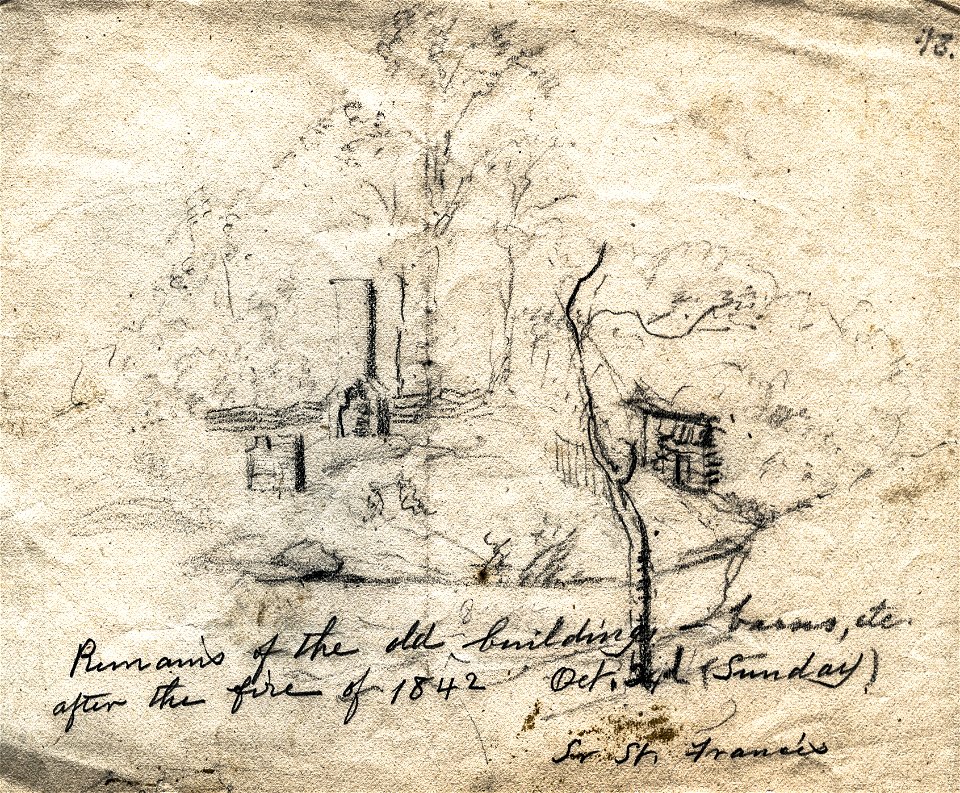 Remains of the old building – barns, etc.
after the fire of 1842 Oct. 2d (Sunday)
Sr St. Francis